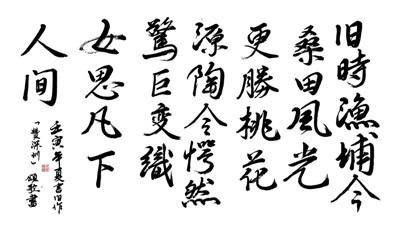 旧時漁埔今
桑田風光
更勝桃花
源陶令愕然
驚巨变織
女思凡下
人间
壬寅年夏书旧作
「贊深圳」 書